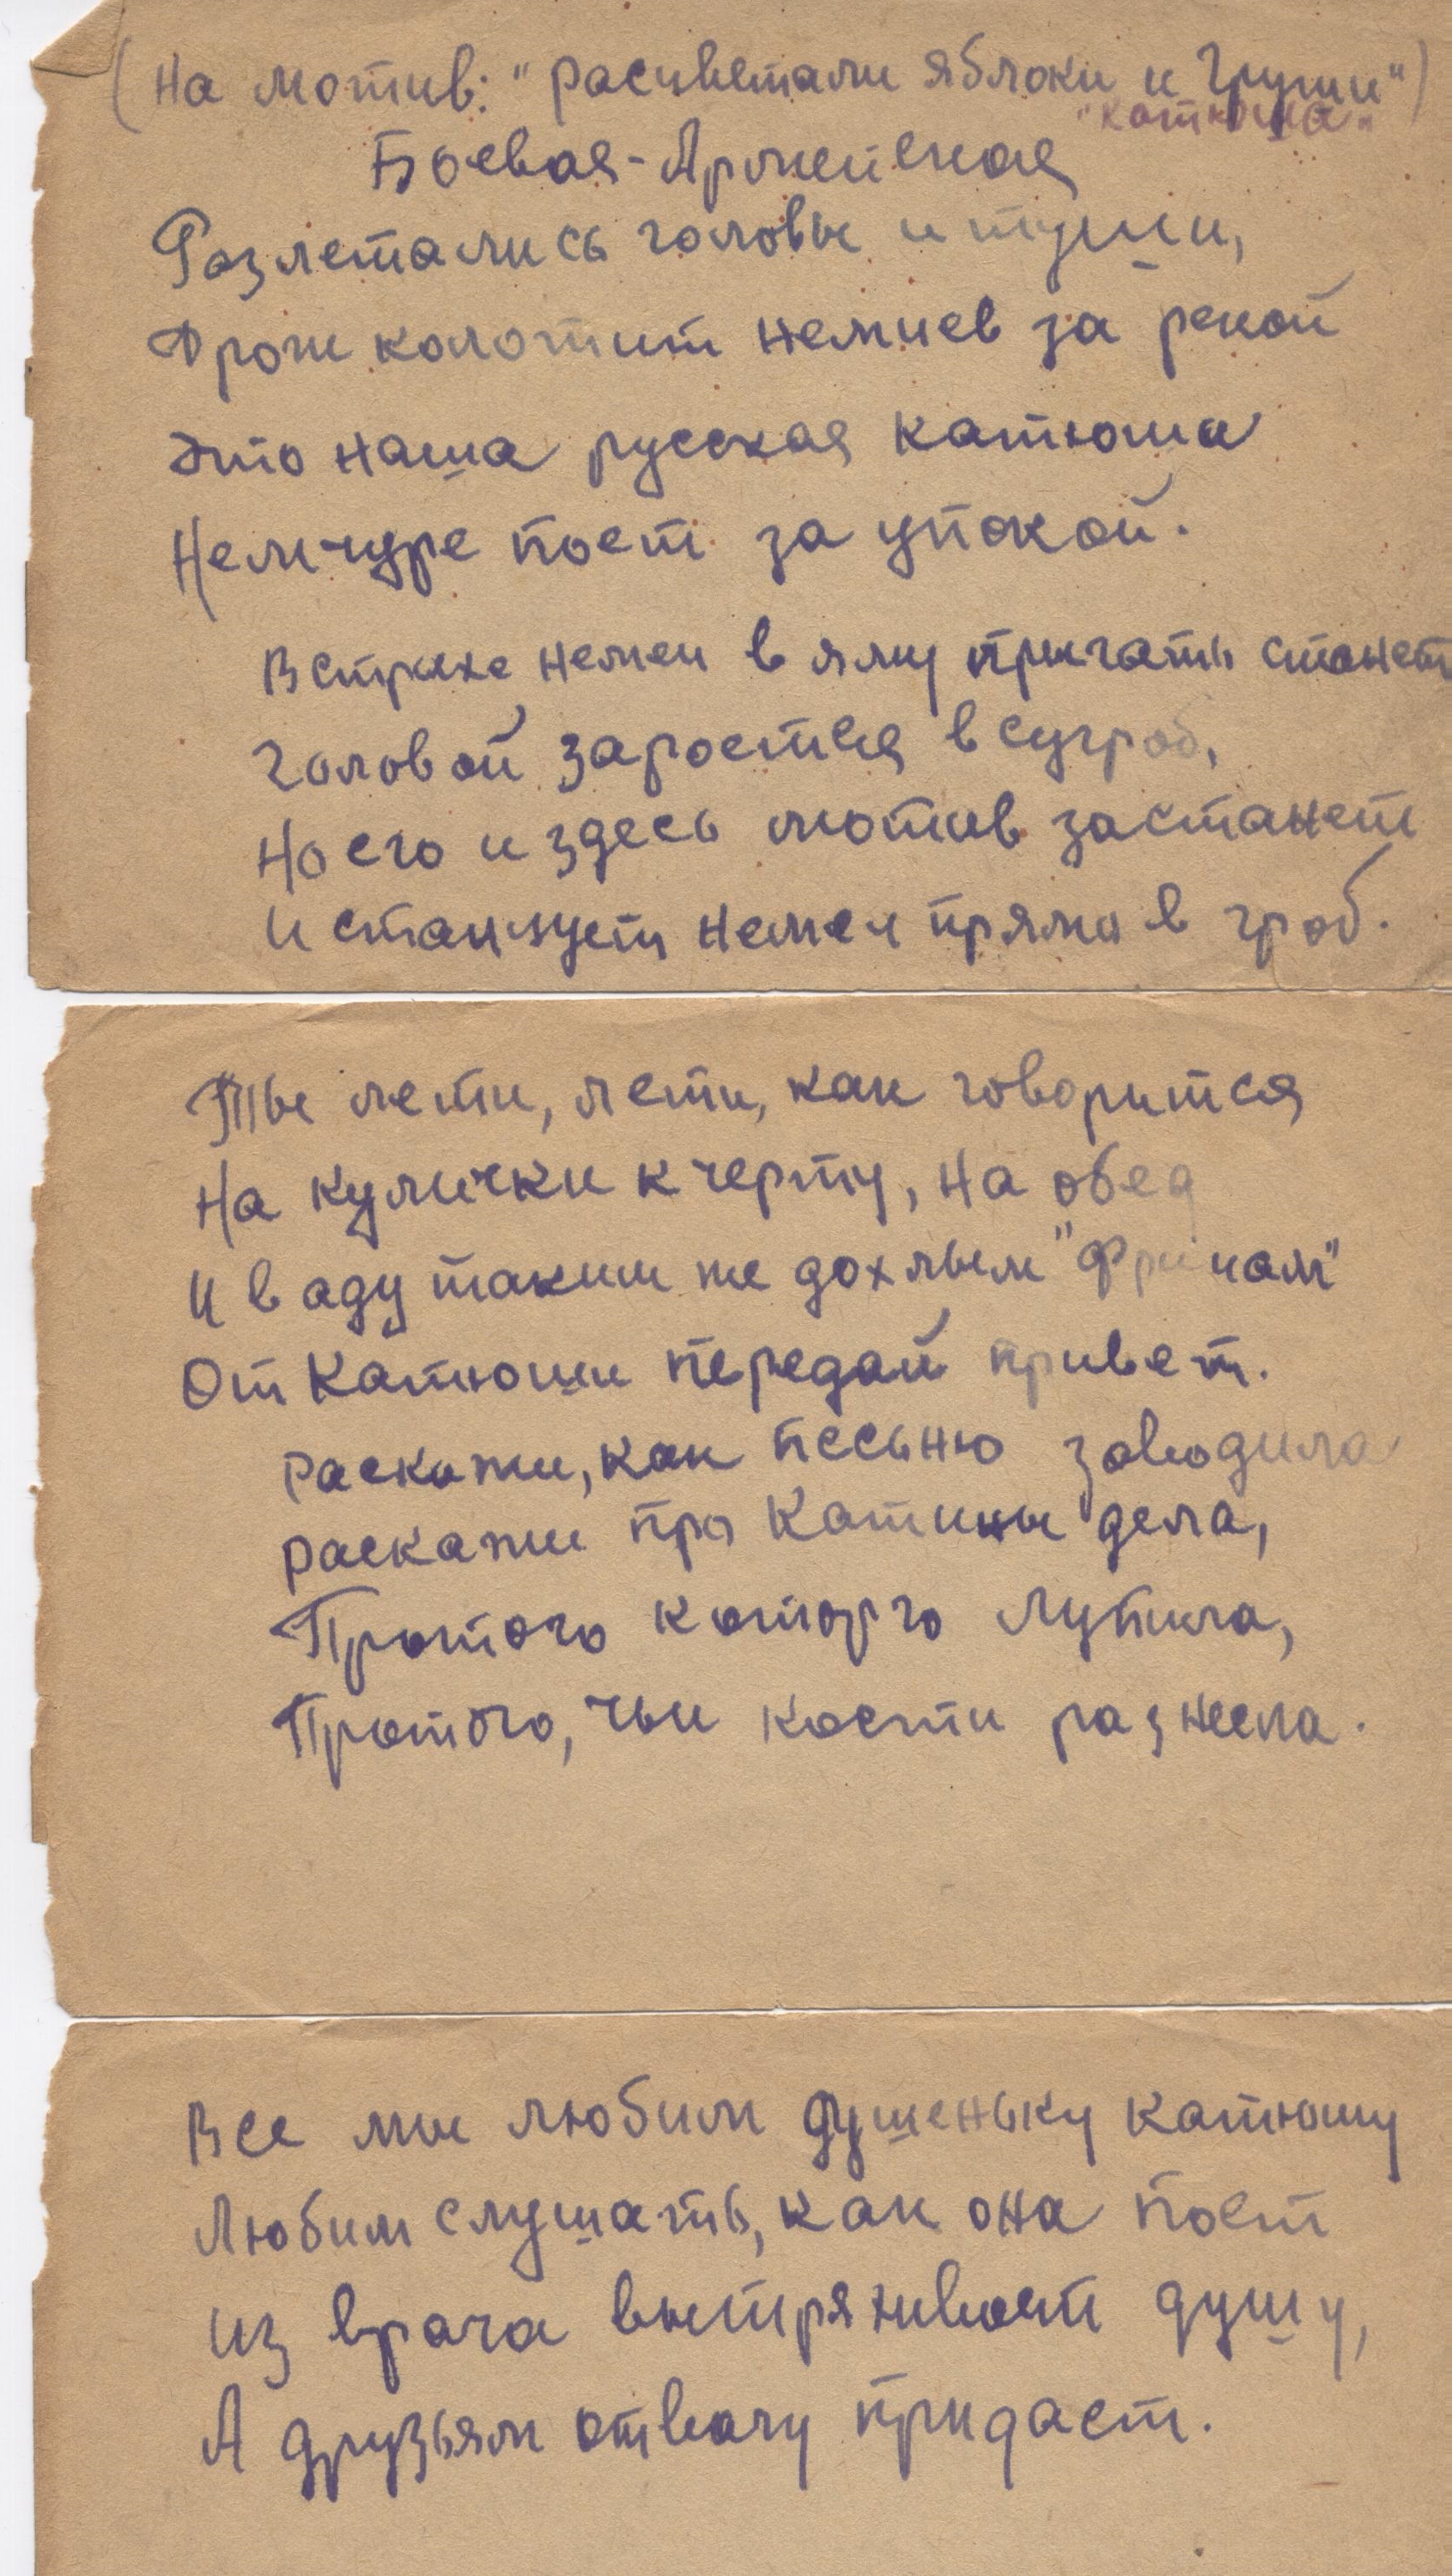 (На мотив: "Расцветали яблоки и Груши")
"Катюша"
Боевая-Армейская
Разлетались головы и туши,
Дрож колотит немцев за рекой
Это наша русская катюша
Немчуре поет за упокой.
В страхе немец в яму прыгать станет
Головой зароется в сугроб,
Но его и здесь мотив застанет
И станцует немец прямо в гроб.
Ты лети, лети, как говорится
На кулички к черту, на обед
И в аду таким же дохлым "Фрицам"
От Катюши передай привет.
Раскажи, как песьню заводила
Раскажи про Катины дела,
Протого которго лупила,
Протого, чьи кости разнесла.
Все мы любим душеньку катюшу
Любим слушать, как она поет
Из врага вытряхивает душу,
А друзьям отвагу придает.